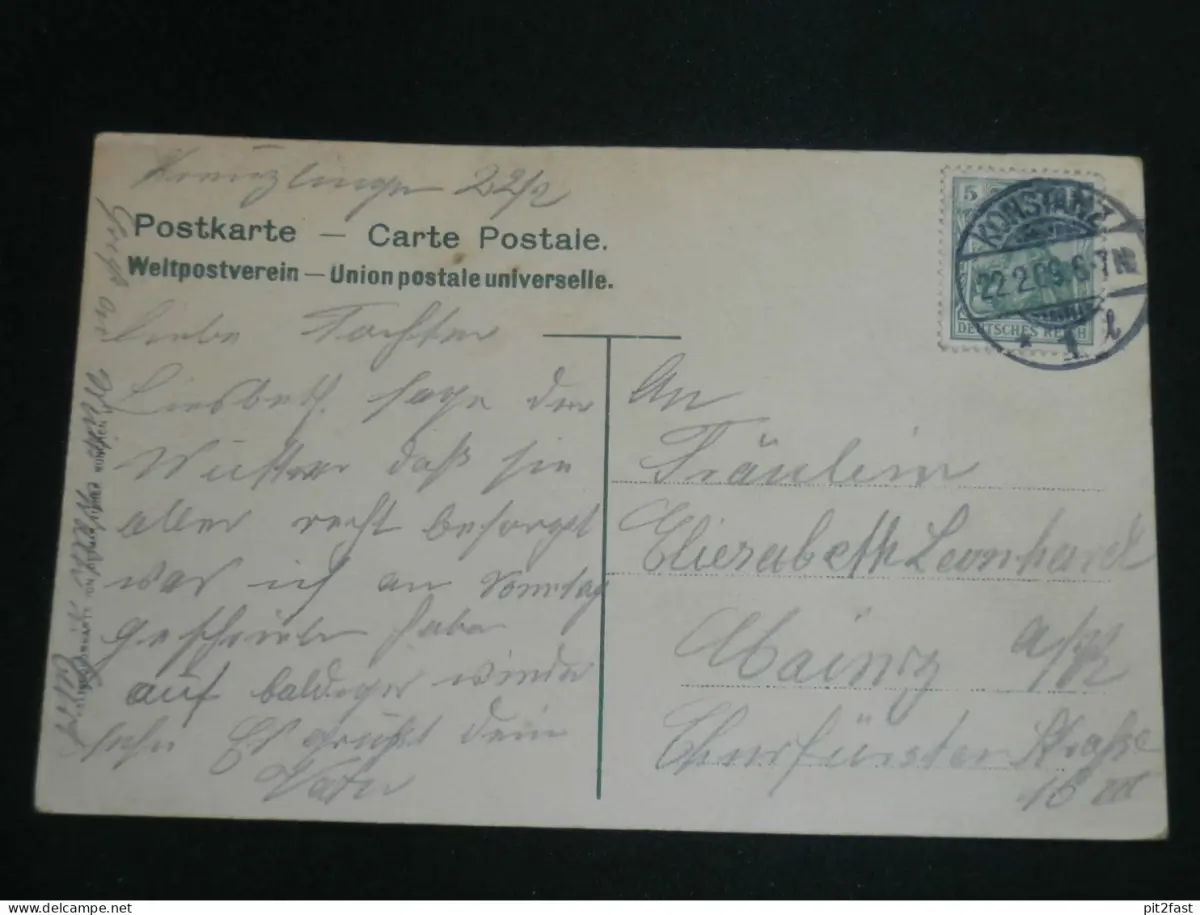 Kreuzlingen 22/2
Postkarte — Carte Postale.
Weltpostverein — Union postale universelle.
Liebe Tochter
Liesbeth. sage der
Mutter daß sie
alles recht besorgt
was ich am Sonntag
geschrieben habe
auf baldiges wieder
sehn Es grüßt dein
Vater
5
DEUTSCHES REICH
KONSTANZ
22.2.09.6-7N
* 1 l
An
Fräulein
Elisabeth Leonhard
Mainz a/R
Churfürsten Straße
16 III
www.delcampe.net
pit2fast